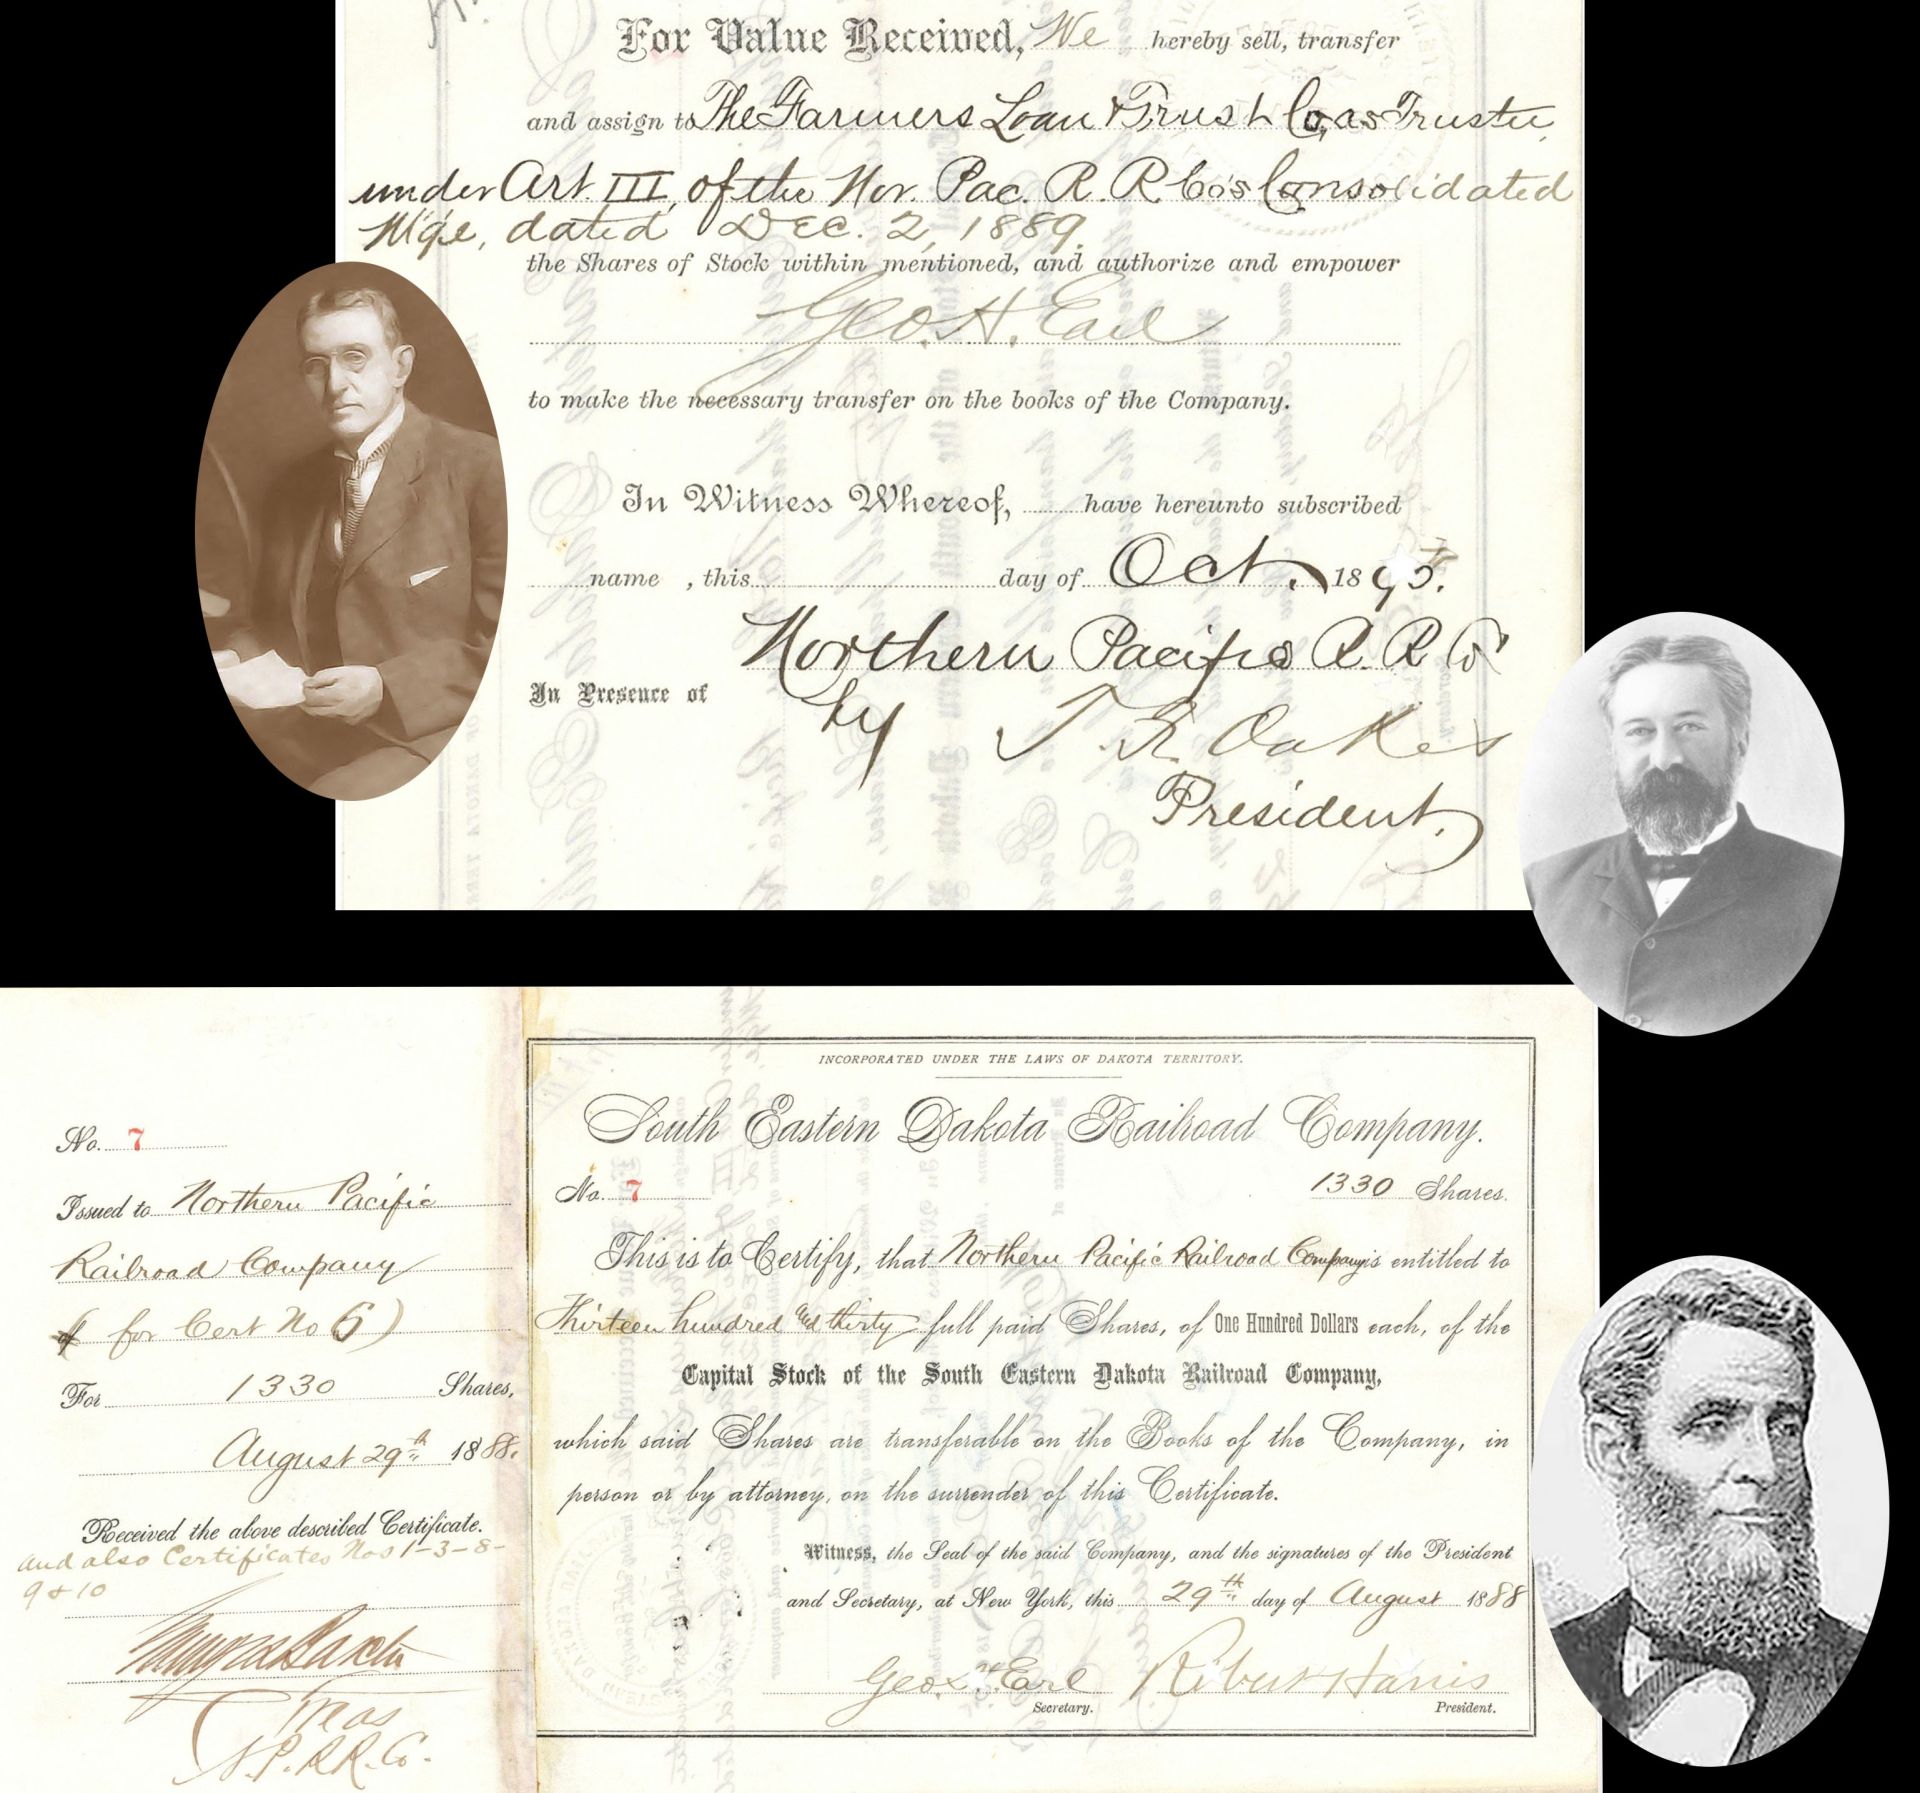 For Value Received, We hereby sell, transfer
and assign to The Farmers Loan & Trust Co, as Trustee,
under Art. III, of the Nor. Pac. R. R. Co's Consolidated
M'g'e, dated Dec. 2, 1889.
the Shares of Stock within mentioned, and authorize and empower
Geo. H. Earl
to make the necessary transfer on the books of the Company.
In Witness Whereof, have hereunto subscribed
name , this day of Oct. 1895.
Northern Pacific R. R. Co
In Presence of
by T. F. Oakes
President.
INCORPORATED UNDER THE LAWS OF DAKOTA TERRITORY.
South Eastern Dakota Railroad Company.
No. 7 1330 Shares.
This is to Certify, that Northern Pacific Railroad Company is entitled to
Thirteen hundred and thirty full paid Shares, of One Hundred Dollars each, of the
Capital Stock of the South Eastern Dakota Railroad Company,
which said Shares are transferable on the Books of the Company, in
person or by attorney, on the surrender of this Certificate.
Witness, the Seal of the said Company, and the signatures of the President
and Secretary, at New York, this 29th day of August 1888
Geo. H. Earl Robert Harris
Secretary. President.
No. 7
Issued to Northern Pacific
Railroad Company
(for Cert No 6)
For 1330 Shares,
August 29th 1888.
Received the above described Certificate.
and also Certificates Nos 1-3-8-
9 & 10
Baxter
Treas
N.P.R.R.Co.